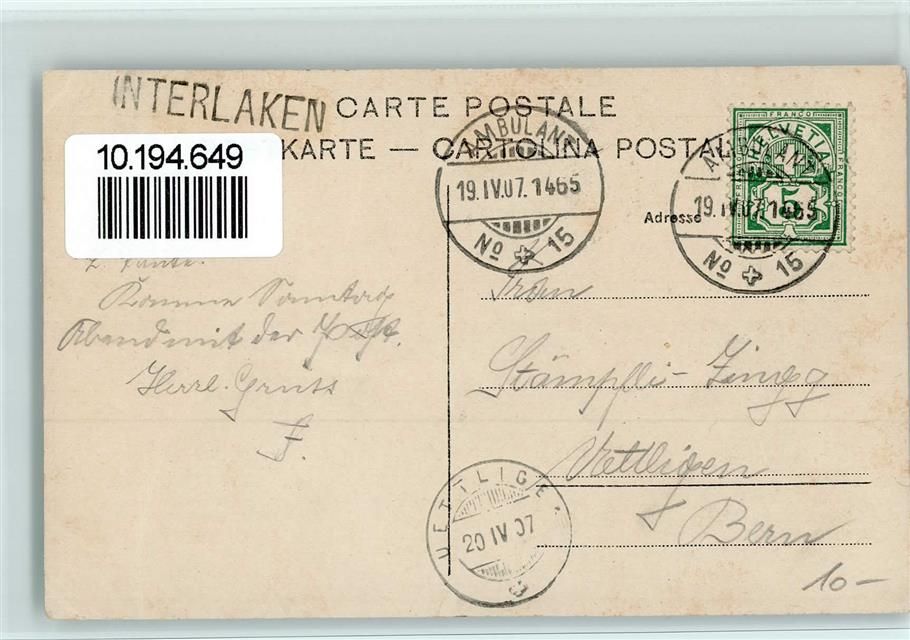 INTERLAKEN
CARTE POSTALE
KARTE — CARTOLINA POSTALE
10.194.649
AMBULANT
19.IV.07.1465
No 15
FRANCO
HELVETIA
FRANCO
FRANCO
5
AMBULANT
19.IV.07.1465
No 15
Adresse
L. Tante.
Komme Sonntag
Abend mit der Post.
Herzl. Gruss
F.
Frau
Stämpfli-Zingg
Uettligen
Bern
UETTLIGEN
20 IV 07
10-